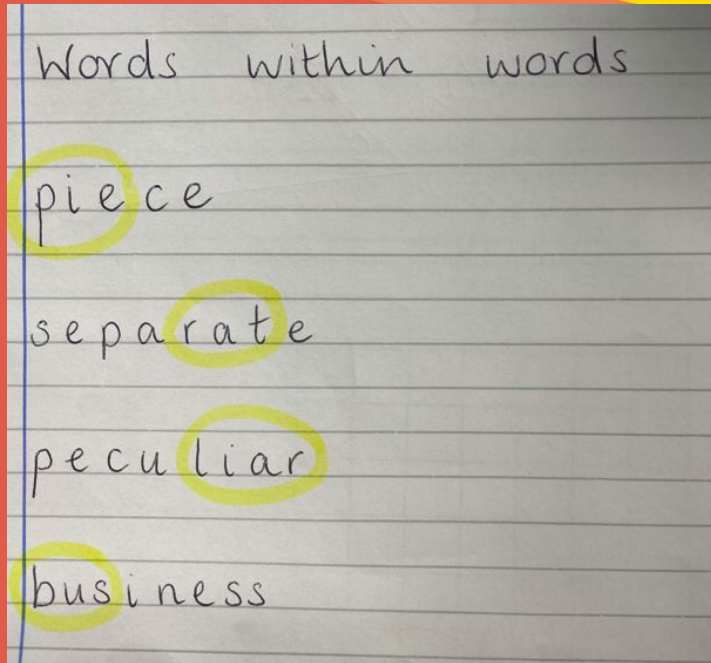 Words within words
piece
separate
peculiar
business